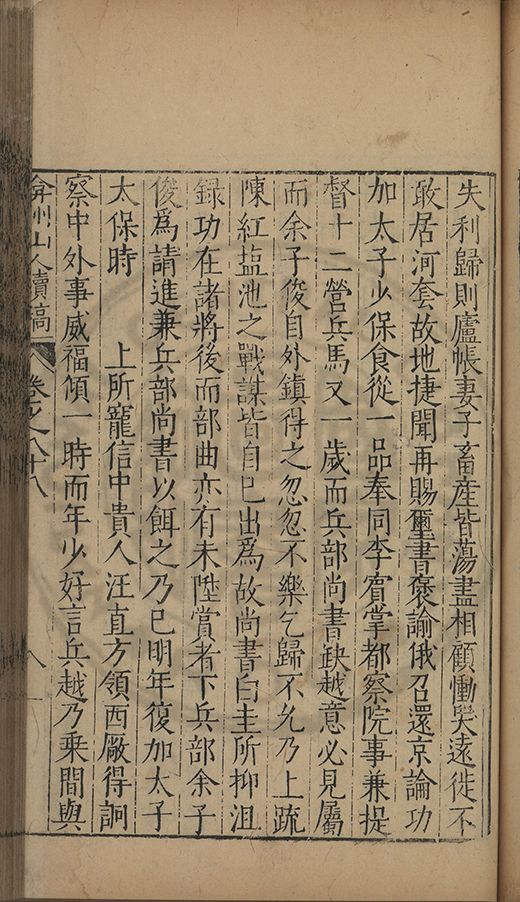 失利歸則廬帳妻子畜産皆蕩盡相顧慟哭遠徙不
敢居河套故地捷聞再賜璽書褒諭俄召還京論功
加太子少保食從一品奉同李賔掌都察院事兼提
督十二營兵馬又一歲而兵部尚書缺越意必見屬
而余子俊自外鎮得之忽忽不樂乞歸不允乃上疏
陳紅塩池之戰謀皆自巳出為故尚書白圭所抑沮
録功在諸將後而部曲亦有未陞賞者下兵部余子
俊為請進兼兵部尚書以餌之乃巳明年復加太子
太保時　上所寵信中貴人汪直方領西厰得詗
察中外事威福傾一時而年少好言兵越乃乗間與
弇州山人續稿　卷之八十八　八